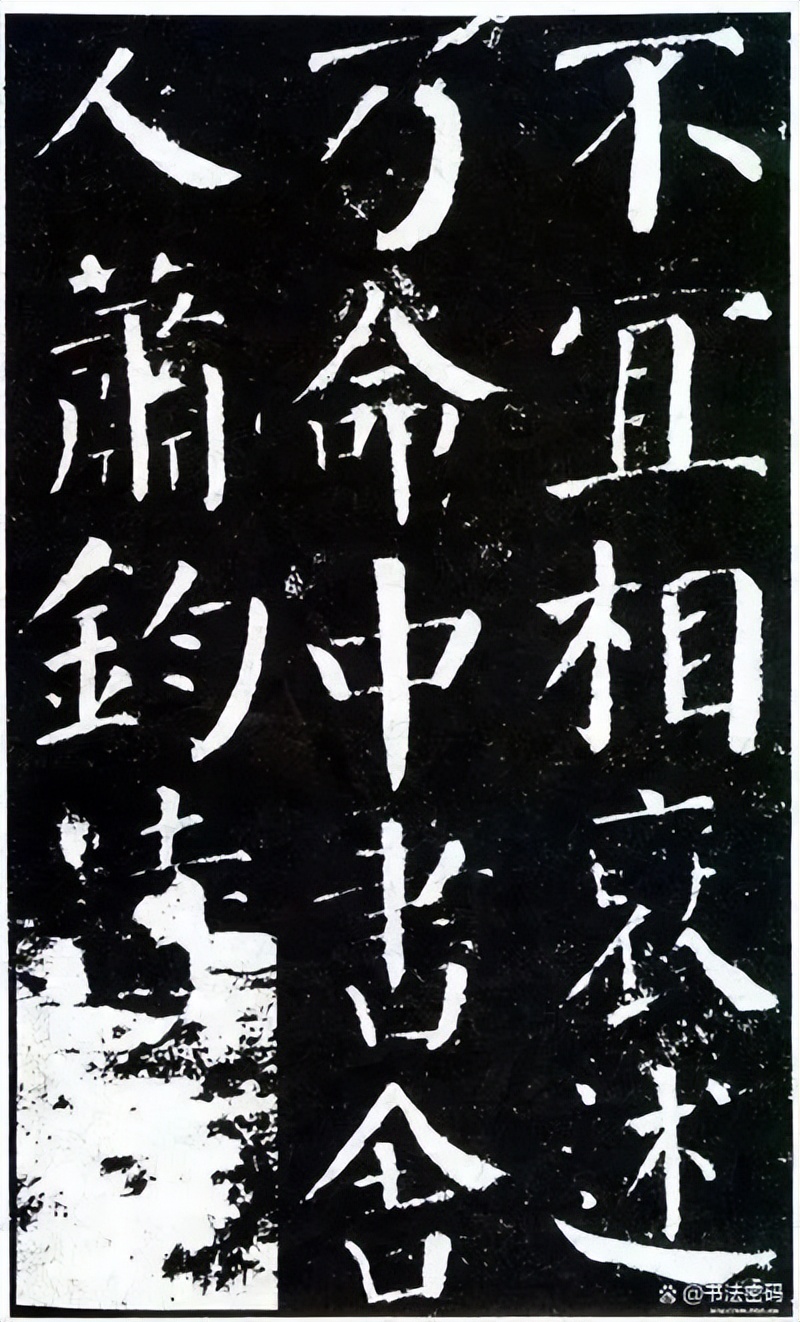 不宜相裒述
乃命中書舍
人蕭鈞
@书法密码